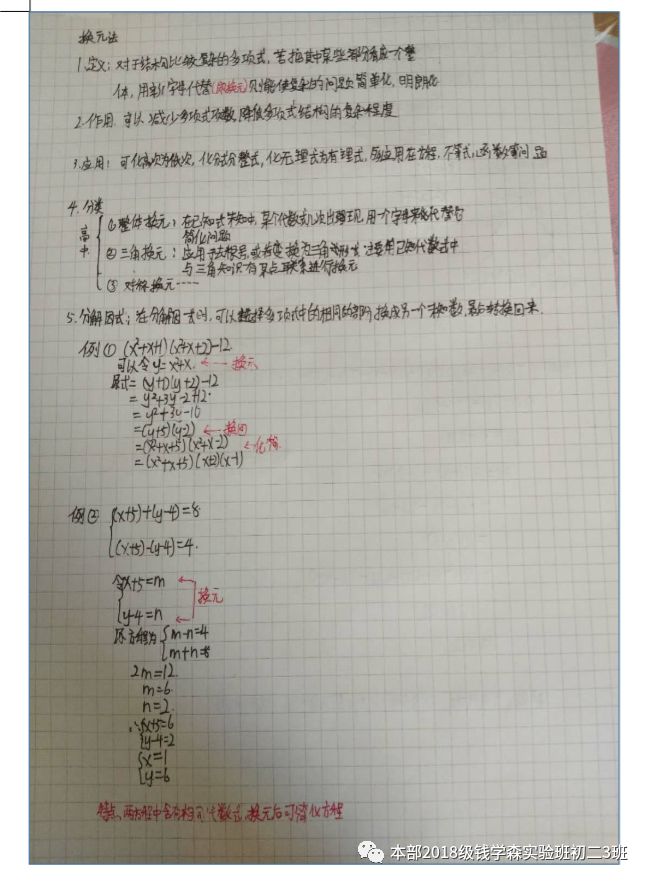 换元法
1.定义:对于结构比较复杂的多项式,若把其中某些部分看成一个整
体,用新字母代替(即换元)则能使复杂的问题简单化,明朗化
2.作用.可以减少多项式项数,降低多项式结构的复杂程度
3.应用:可化高次为低次,化分式为整式,化无理式为有理式,应用在方程,不等式,函数等问题
4.分类
高中
①整体换元:在已知或未知中,某个代数式几次出现,用一个字母来代替它
简化问题
②三角换元:应用于去根号,或者变换为三角形式 主要用已知代数式中
与三角知识有某点联系进行换元
③对称换元······
5.分解因式:在分解因式时,可以选择多项式中的相同的部分,换成另一个未知数,最后转换回来.
例① (x²+x+1)(x²+x+2)-12.
可以令y=x²+x. ←--换元
原式=(y+1)(y+2)-12
=y²+3y+2-12.
=y²+3y-10
=(y+5)(y-2) ←--换回
=(x²+x+5)(x²+x-2) ←化简.
=(x²+x+5)(x+2)(x-1)
例② (x+5)+(y-4)=8.
(x+5)-(y-4)=4.
令x+5=m
y-4=n
换元
原方程为 m-n=4
m+n=8
2m=12.
m=6.
n=2.
∴ x+5=6
y-4=2
x=1
y=6
特点,两方程中含有相同代数式,换元后可简化方程
本部2018级钱学森实验班初二3班